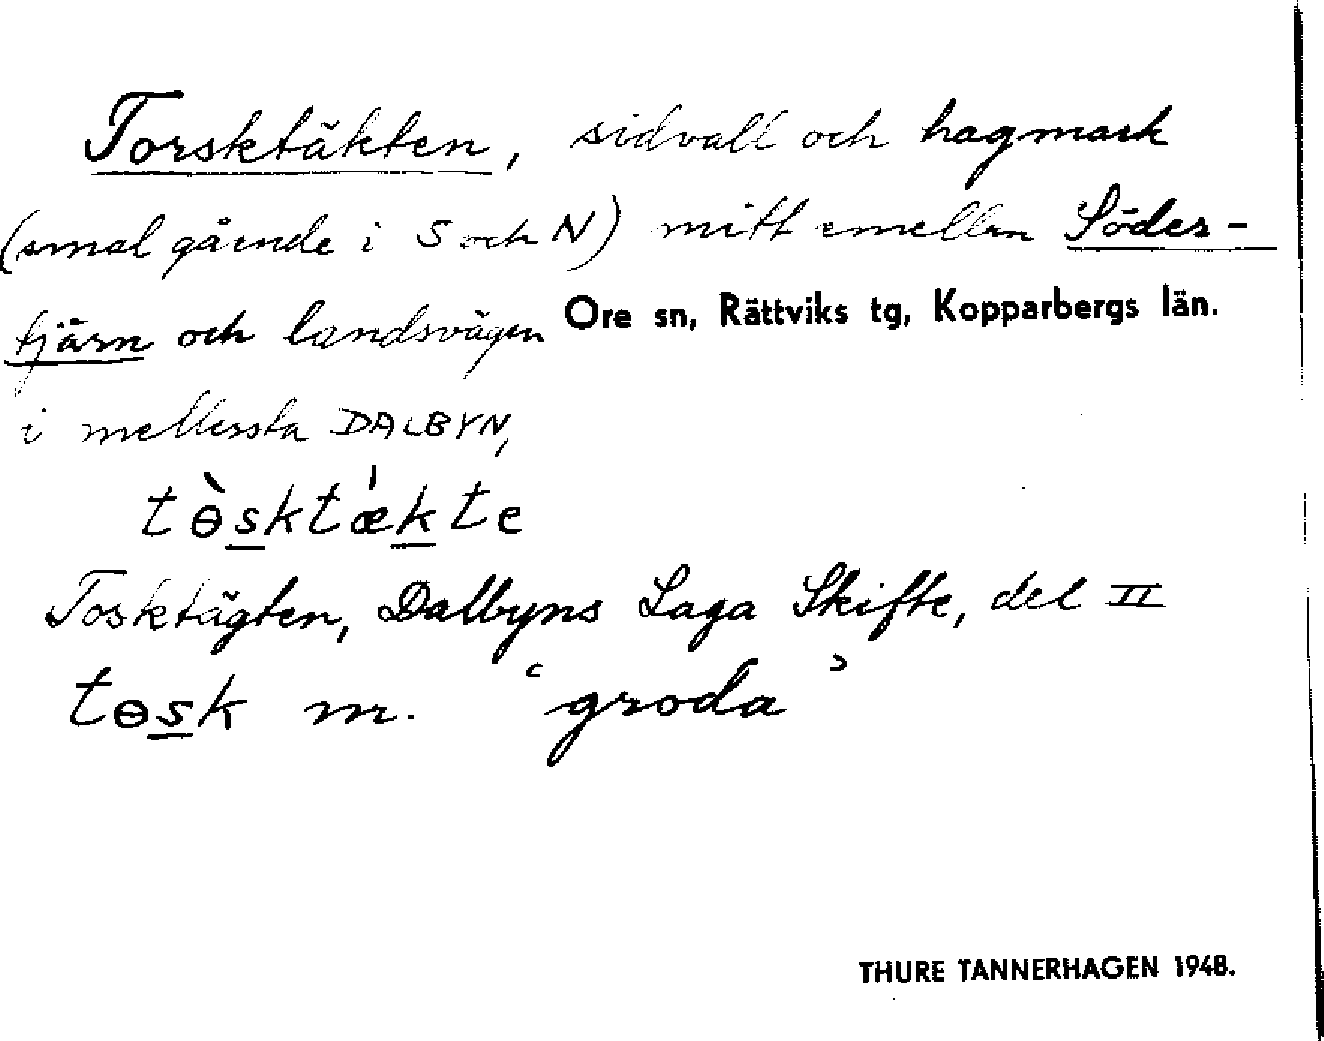 Torsktäkten, sidvall och hagmark
(smal gående i S och N) mitt emellan Söder-
tjärn och landsvägen Ore sn, Rättviks tg, Kopparbergs län.
i mellersta DALBYN,
tɵ̀sktǽkte
Tosktägten, Dalbyns Laga Skifte, del II
tɵsk m. ‘groda’
THURE TANNERHAGEN 1948.